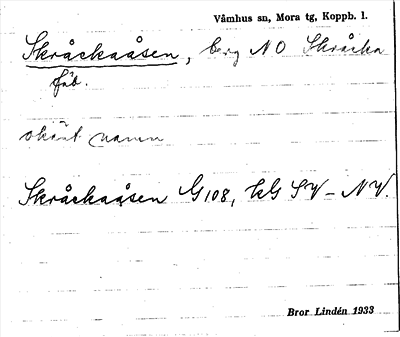 Våmhus sn, Mora tg, Koppb. l.
Skråckaåsen, berg NO Skråcka
fäb.
okänt namn
Skråckaåsen G 108, kG SV – NV.
Bror Lindén 1933